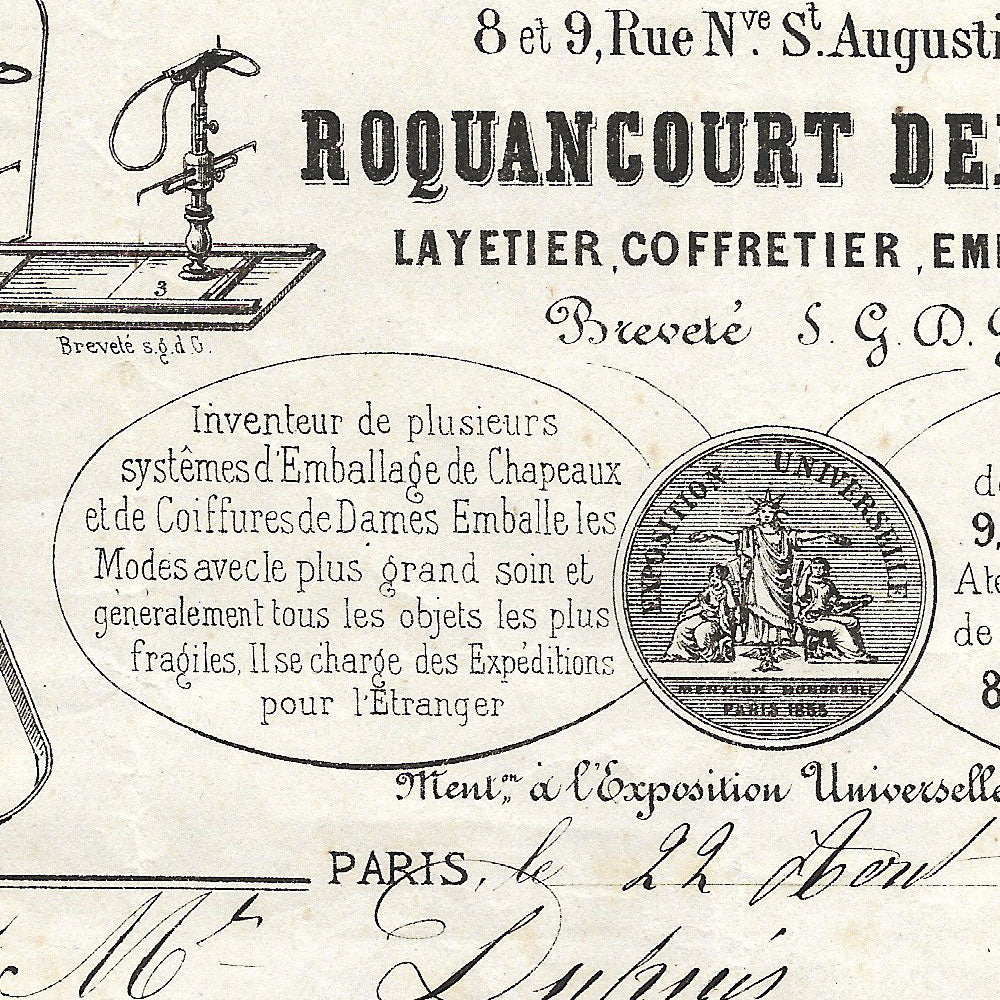 8 et 9, Rue Nve. St. Augusti
ROQUANCOURT DE
LAYETIER, COFFRETIER, EM
Breveté S. G. D. G
3
Breveté s.g.d.G.
Inventeur de plusieurs
systêmes d'Emballage de Chapeaux
et de Coiffures de Dames Emballe les
Modes avec le plus grand soin et
généralement tous les objets les plus
fragiles, Il se charge des Expéditions
pour l'Étranger
EXPOSITION UNIVERSELLE
MENTION HONORABLE
PARIS 1855
de
9,
Ate
de
8
Mention à l'Exposition Universelle
PARIS, le 22 Aout
Mr Dupuis